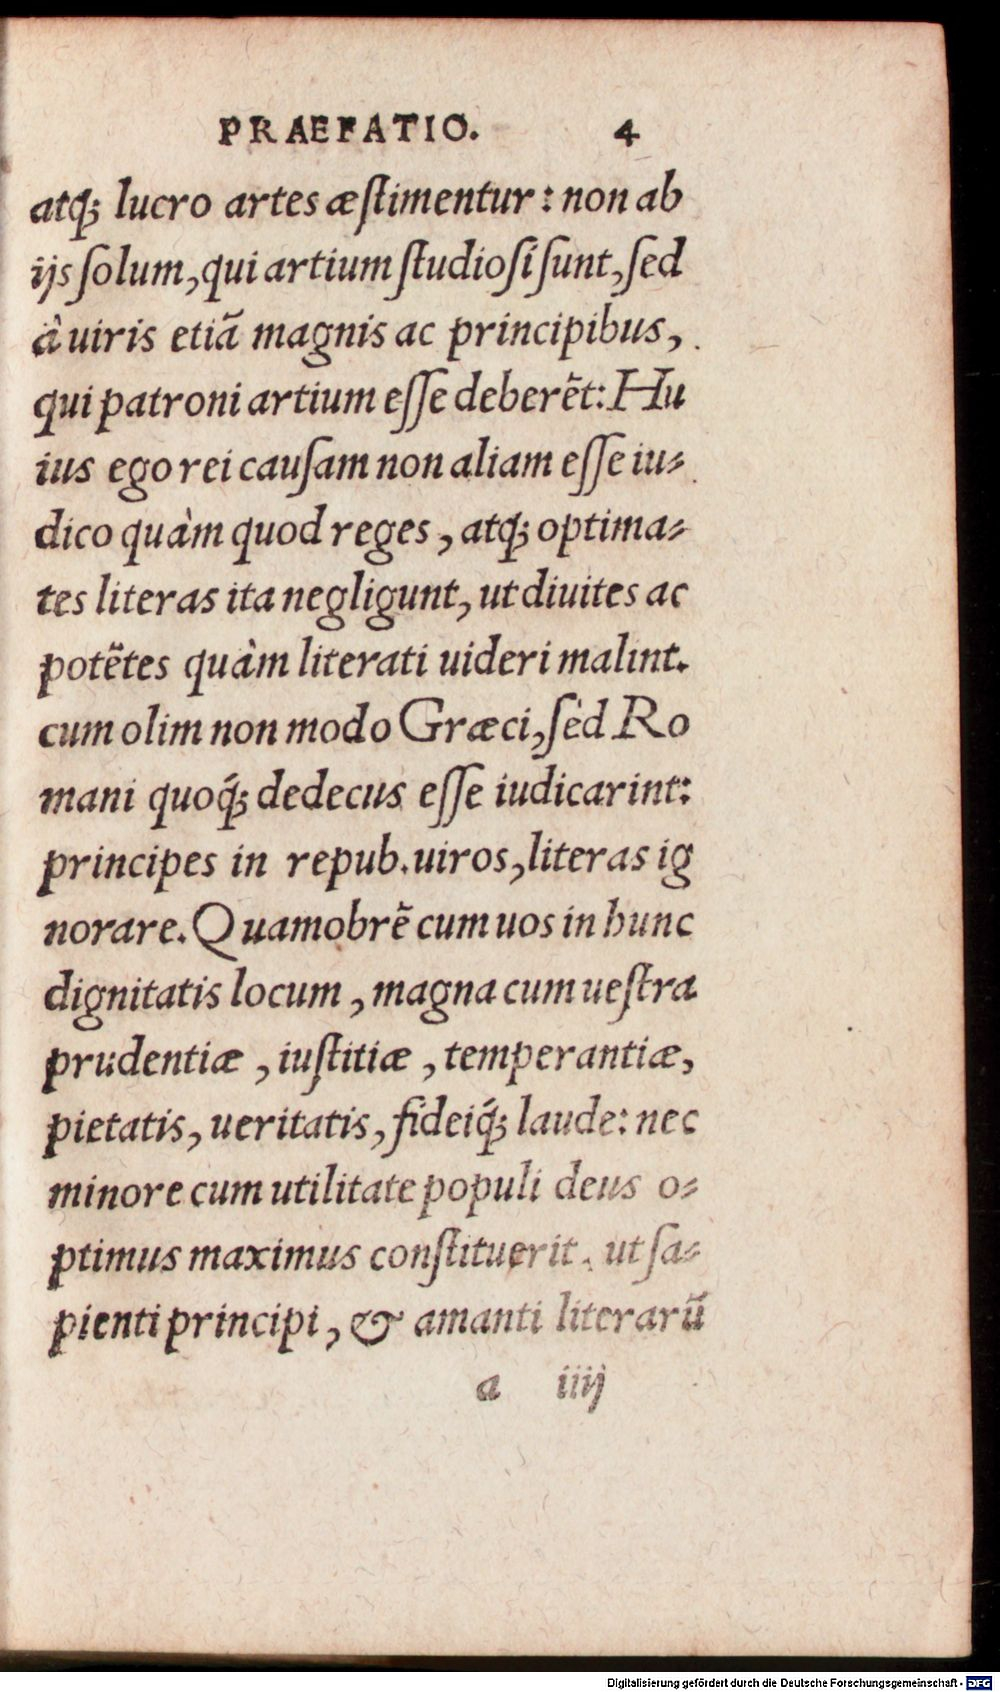 PRAEFATIO. 4
atq́; lucro artes æſtimentur: non ab
ijs ſolum, qui artium ſtudioſi ſunt, ſed
à uiris etiã magnis ac principibus,
qui patroni artium eſſe deberẽt: Hu
ius ego rei cauſam non aliam eſſe iu⸗
dico quàm quod reges, atq́; optima⸗
tes literas ita negligunt, ut diuites ac
potẽtes quàm literati uideri malint.
cum olim non modo Græci, ſed Ro
mani quoq́; dedecus eſſe iudicarint:
principes in repub. uiros, literas ig
norare. Quamobrẽ cum uos in hunc
dignitatis locum, magna cum ueſtra
prudentiæ, iuſtitiæ, temperantiæ,
pietatis, ueritatis, fideiq́; laude: nec
minore cum utilitate populi deus o⸗
ptimus maximus conſtituerit, ut ſa⸗
pienti principi, & amanti literarũ
a iiij
Digitalisierung gefördert durch die Deutsche Forschungsgemeinschaft - DFG